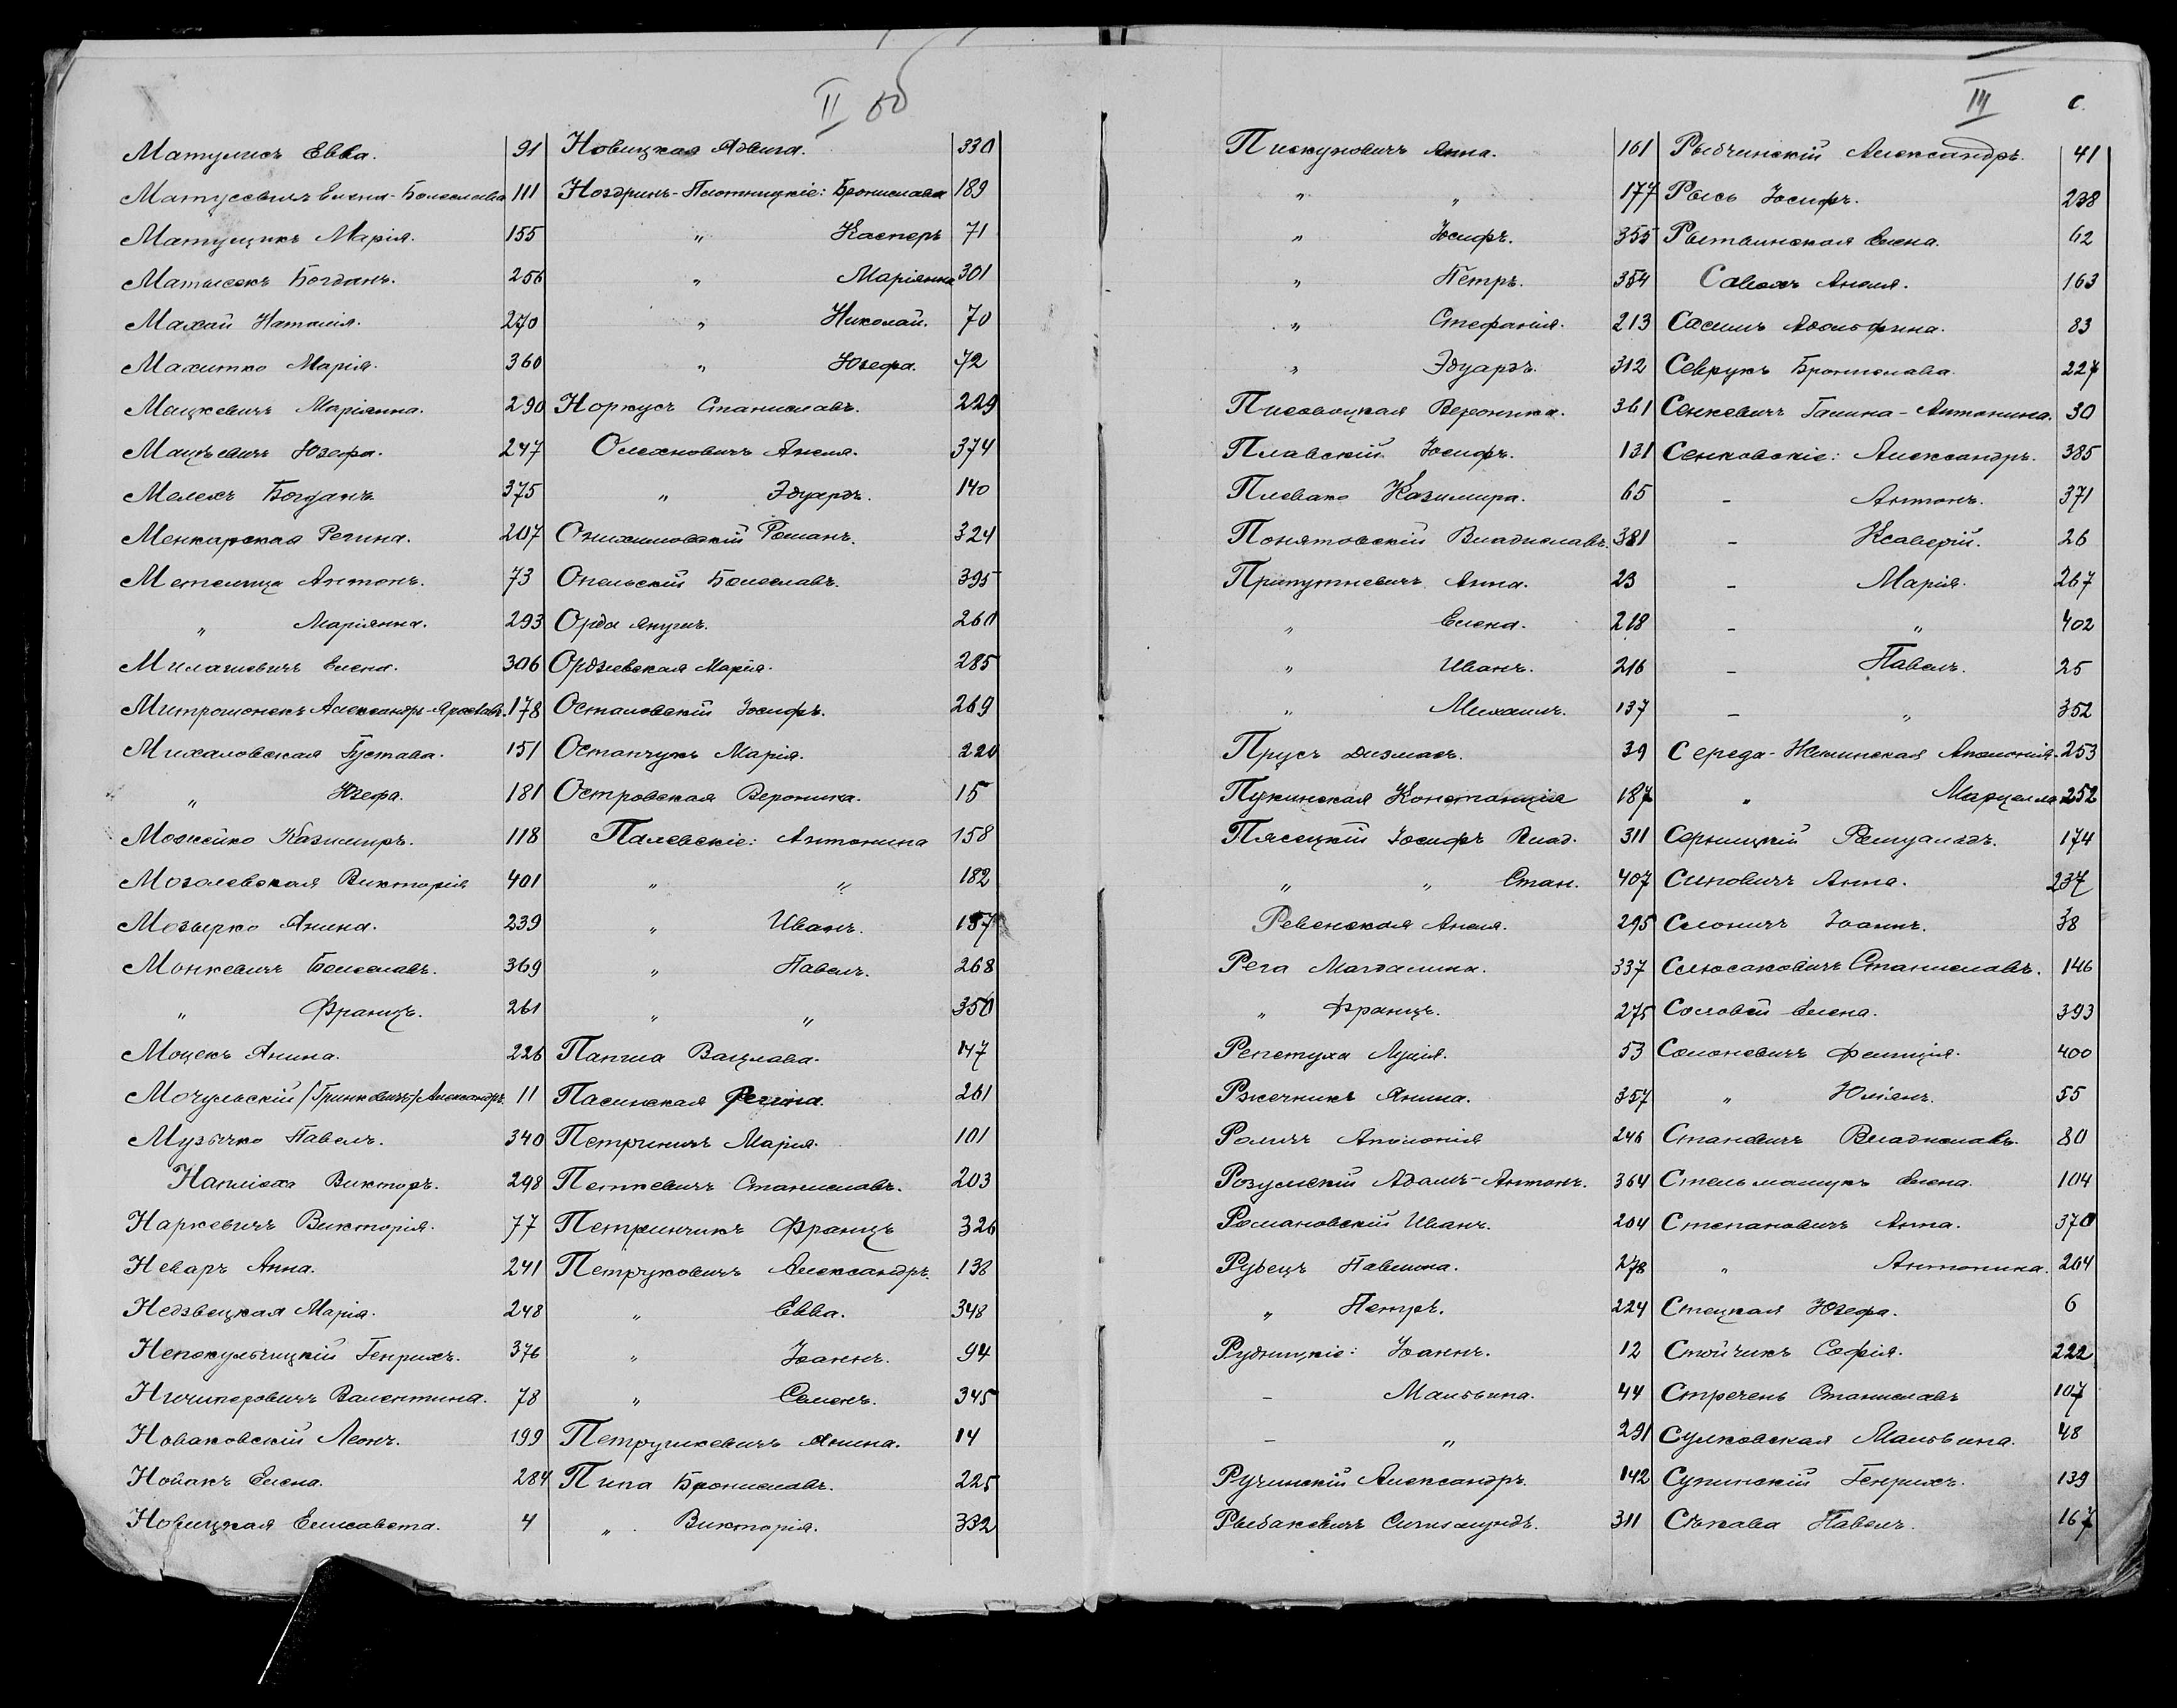 II об
Матулисъ Евва. 91
Матусевичъ Елена-Болеслава 111
Матущикъ Марія. 155
Матысекъ Богданъ. 256
Махай Наталія. 270
Махитко Марія. 360
Мацкевичъ Маріянна. 290
Мацѣевичъ Юзефа. 247
Мелехъ Богданъ 375
Менкарская Регина. 207
Метелица Антонъ. 73
" Маріянна. 293
Милашевичъ Елена. 306
Митрошонекъ Александръ-Ярославъ. 178
Михаловская Густава. 151
" Юзефа. 181
Можейко Казимиръ. 118
Мозолевская Викторія 401
Мозырко Янина. 239
Монкевичъ Болеславъ. 369
" Францъ. 261
Моцекъ Янина. 226
Мочульскій /Гринкевичъ/ Александръ. 11
Музычко Павелъ. 340
Наплѣха Викторъ. 298
Наркевичъ Викторія. 77
Неваръ Анна. 241
Недзвецкая Марія. 248
Непокульчицкій Генрихъ. 376
Ничипоровичъ Валентина. 78
Новаковскій Леонъ. 199
Новакъ Елена. 284
Новицкая Елисавета. 4
Новицкая Ядвига. 330
Ноздринъ-Плотницкіе: Брониславъ 189
" Касперъ 71
" Маріянна 301
" Николай. 70
" Юзефа. 72
Норкусъ Станиславъ. 229
Олехновичъ Анеля. 374
" Эдуардъ. 140
Онихимовскій Романъ. 324
Опельскій Болеславъ. 395
Орда Янушъ. 260
Ордзіевская Марія. 285
Осталовскій Іосифъ. 269
Остапчукъ Марія. 220
Островская Вероника. 15
Палевскіе: Антонина 158
" " 182
" Иванъ. 157
" Павелъ. 268
" " 350
Папша Вацлава. 147
Пасинская Регина. 261
Петриничъ Марія. 101
Петкевичъ Станиславъ. 203
Петринчикъ Францъ 326
Петруковичъ Александръ. 138
" Евва. 348
" Іоаннъ. 94
" Семенъ. 345
Петрушкевичъ Янина. 14
Пипа Брониславъ. 225
" Викторія. 332
III с.
Пискуновичъ Анна. 161
" " 177
" Іосифъ. 355
" Петръ. 354
" Стефанія. 213
" Эдуардъ. 312
Писовоцкая Вероника. 361
Плавскій Іосифъ. 131
Плевако Казимира. 65
Понятовскій Владиславъ. 381
Припутневичъ Анна. 23
" Елена. 218
" Иванъ. 216
" Михаилъ. 137
Прусъ Дизмасъ. 39
Пукинская Констанція 187
Пясецкій Іосифъ Влад. 311
" " Стан. 407
Ревенская Анеля. 295
Рега Магдалина. 337
" Францъ. 275
Репетуха Луція. 53
Ржечникъ Янина. 357
Роличъ Аполонія 246
Розумскій Адамъ-Антонъ. 364
Романовскій Иванъ. 204
Рубецъ Павлина. 278
" Петръ. 224
Рудницкіе: Іоаннъ. 12
- Мальвина. 44
- " 291
Ручинскій Александръ. 142
Рыбакевичъ Сигизмундъ. 311
Рыбчинскій Александръ. 41
Рысь Іосифъ. 238
Рытвинская Елена. 62
Савохъ Анеля. 163
Сасимъ Адольфина. 83
Севрукъ Бронислава. 227
Сенкевичъ Галина-Антонина. 30
Сенковскіе: Александръ. 385
- Антонъ. 371
- Ксаверій. 26
- Марія. 267
- " 402
- Павелъ. 25
- " 352
Середа-Жилинская Аполонія. 253
" Марцелла 252
Серницкій Ромуальдъ. 174
Силовичъ Анна. 237
Слоничъ Іоаннъ. 38
Слюсаковичъ Станиславъ. 146
Соловей Елена. 393
Солоневичъ Фелиція. 400
" Юліянъ. 55
Станевичъ Владиславъ. 80
Стельмащукъ Елена. 104
Степановичъ Анна. 370
" Антонина. 264
Стецкая Юзефа. 6
Стойчикъ Софія. 222
Стречень Станиславъ 107
Сулковская Мальвина. 48
Супинскій Генрихъ. 139
Съкава Павелъ. 167